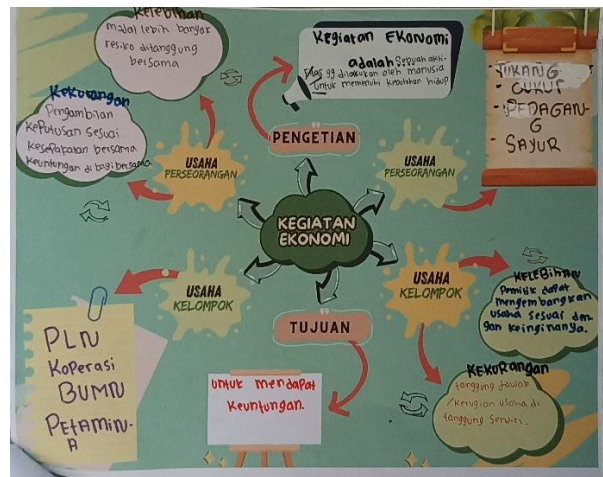 Kelebihan
modal lebih banyak
resiko ditanggung
bersama
Kekurangan
Pengambilan
Keputusan Sesuai
Kesepakatan bersama
Keuntungan di bagi bersama
USAHA
PERSEORANGAN
Kegiatan EKonomi
adalah Sebuah akti-
fitas yg dilakukan oleh manusia
untuk memenuhi kebutuhan hidup
PENGETIAN
USAHA
PERSEORANGAN
TUKANG
- CUKUR
- PEDAGAN-
G
- SAYUR
KEGIATAN
EKONOMI
USAHA
KELOMPOK
PLN
Koperasi
BUMN
PetAMIN-
A
TUJUAN
untuk mendapat
Keuntungan.
USAHA
KELOMPOK
KELEBIHAN
Pemilik dapat
mengembangkan
usaha sesuai den-
gan keinginanya.
KEKURANGAN
tangging Jawab
/Kerugian usaha di
tanggung Sendiri.